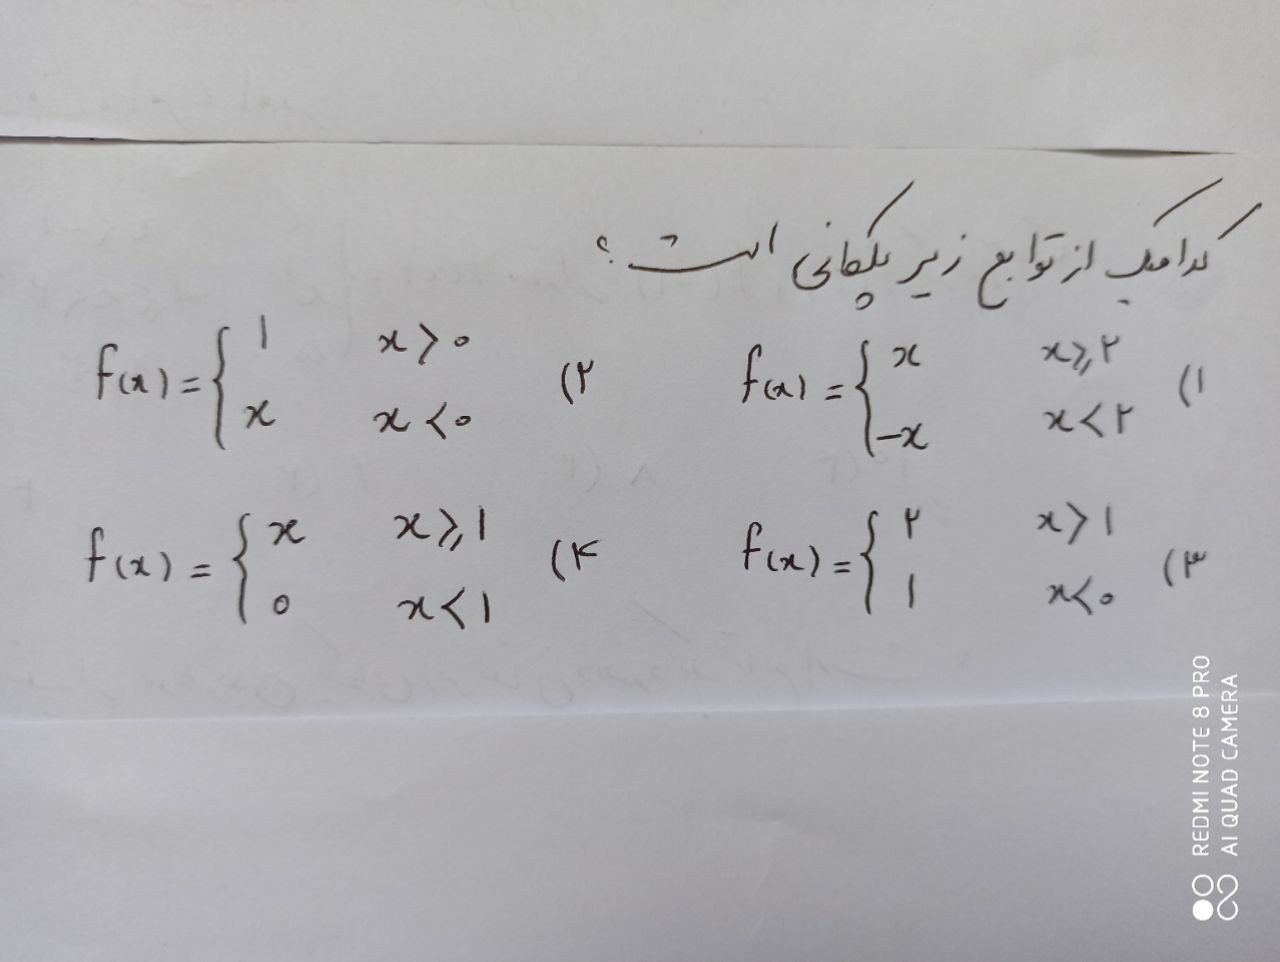 کدامیک از توابع زیر یکانی است؟
۱) f(x) = { x x ⩾ ۲
-x x < ۲
۲) f(x) = { ۱ x > ۰
x x < ۰
۳) f(x) = { ۲ x > ۱
۱ x < ۰
۴) f(x) = { x x ⩾ ۱
۰ x < ۱
REDMI NOTE 8 PRO
AI QUAD CAMERA